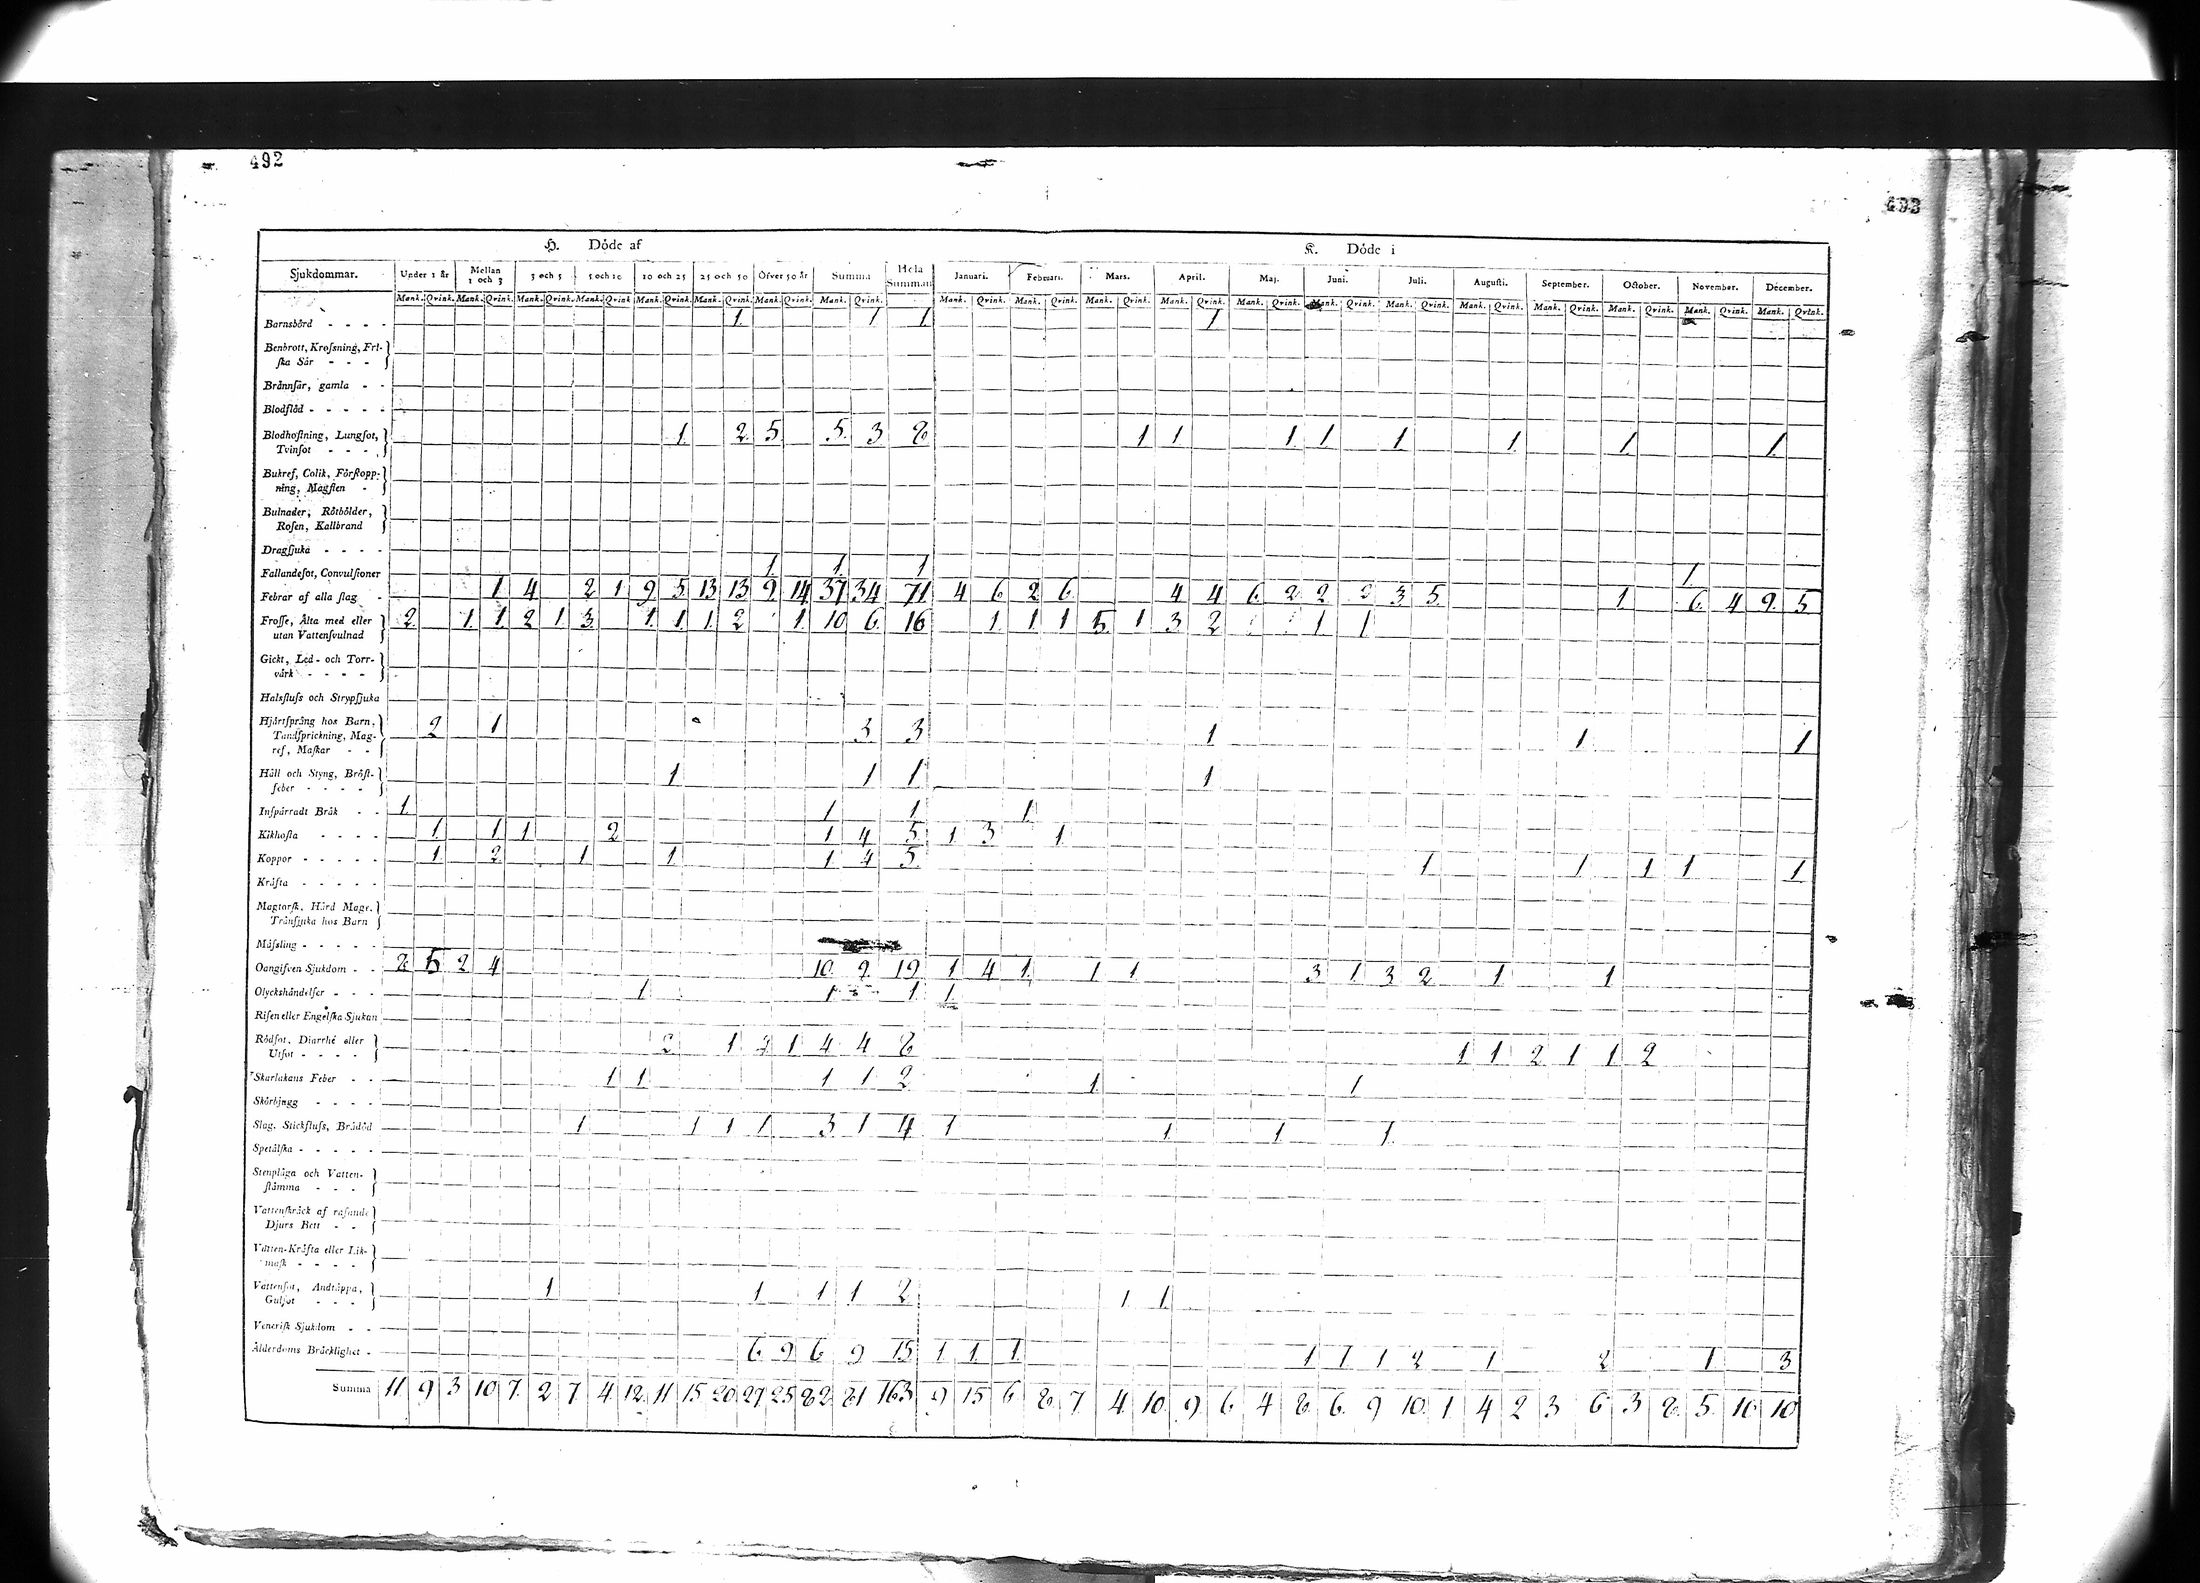 492
493
H. Döde af K. Döde i
Sjukdommar. Under 1 år Mellan 1 och 3 3 och 5 5 och 10 10 och 25 25 och 50 Öfver 50 år Summa Hela Summan Januari. Februari. Mars. April. Maj. Juni. Juli. Augusti. September. October. November. December.
Mank. Qvink. Mank. Qvink. Mank. Qvink. Mank. Qvink. Mank. Qvink. Mank. Qvink. Mank. Qvink. Mank. Qvink. Mank. Qvink. Mank. Qvink. Mank. Qvink. Mank. Qvink. Mank. Qvink. Mank. Qvink. Mank. Qvink. Mank. Qvink. Mank. Qvink. Mank. Qvink. Mank. Qvink. Mank. Qvink.
Barnsbörd - - - - 1. 1 1 1
Benbrott, Krossning, Fri-
ska Sår - - -
Brännsår, gamla - -
Blodflöd - - - - -
Blodhostning, Lungsot, 1. 2. 5. 5. 3 8 1 1 1. 1. 1 1. 1. 1.
Tvinsot - - -
Bukref, Colik, Förstopp-
ning, Magsten -
Bulnader, Rötbölder,
Rosen, Kallbrand
Dragsjuka - - - -
Fallandesot, Convulsioner 1. 1. 1 1.
Febrar af alla slag - 1 4 2 1 9 5 13 13 9 14 37 34 71 4 6 2 6 4 4 6 2 2 2 3 5 1 6 4 9 5
Frosse, Älta med eller 2. 1. 1. 2 1 3. 1. 1. 1. 2 1. 10 6. 16 1. 1. 1 5. 1 3 2 1. 1
utan Vattensvulnad
Gickt, Led- och Torr-
värk - - - -
Halsfluss och Strypsjuka
Hjärtsprång hos Barn, 2 1 3 3 1 1. 1
Tandsprickning, Mag-
ref, Maskar - -
Håll och Styng, Bröst- 1 1 1 1
feber - - - -
Inspärradt Bråk - - 1. 1 1 1
Kikhosta - - - - 1. 1 1 2 1 4 5 1 3 1
Koppor - - - - - 1. 2 1 1 1 4 5. 1 1 1 1 1
Kräfta - - - - -
Magtarsk, Hård Mage,
Tränsjuka hos Barn
Mässling - - - - -
Oangifven Sjukdom - - 2 5 2 4 10 9 19 1 4 1. 1 1 3 1. 3 2 1 1
Olyckshändelser - - - 1 1 1. 1.
Risen eller Engelska Sjukan
Rödsot, Diarrhé eller 2 1 3 1 4 4 8 1 1 2 1 1 2
Utsot - - - -
Skarlakans Feber - - 1 1 1 1 2 1. 1
Skörbjugg - - - -
Slag, Stickfluss, Brådöd 1 1 1 1 3 1 4 1 1 1 1.
Spetälska - - - - -
Stenplåga och Vatten-
stämma - - -
Vattenskräck af rasande
Djurs Bett - -
Vatten-Kräfta eller Lik-
mask - - - -
Vattensot, Andtäppa, 1 1 1 1 2 1 1.
Gulsot - - -
Venerisk Sjukdom - -
Ålderdoms Bräcklighet - 6 9 6 9 15 1 1. 1. 1 1 1 2 1 2 1 3
Summa 11 9 3 10 7. 2 7 4 12. 11 15 20 27 25 82 81 163 9 15 6 8 7 4. 10. 9 6 4 8. 6. 9 10. 1 4 2 3 6 3 8. 5. 10 10